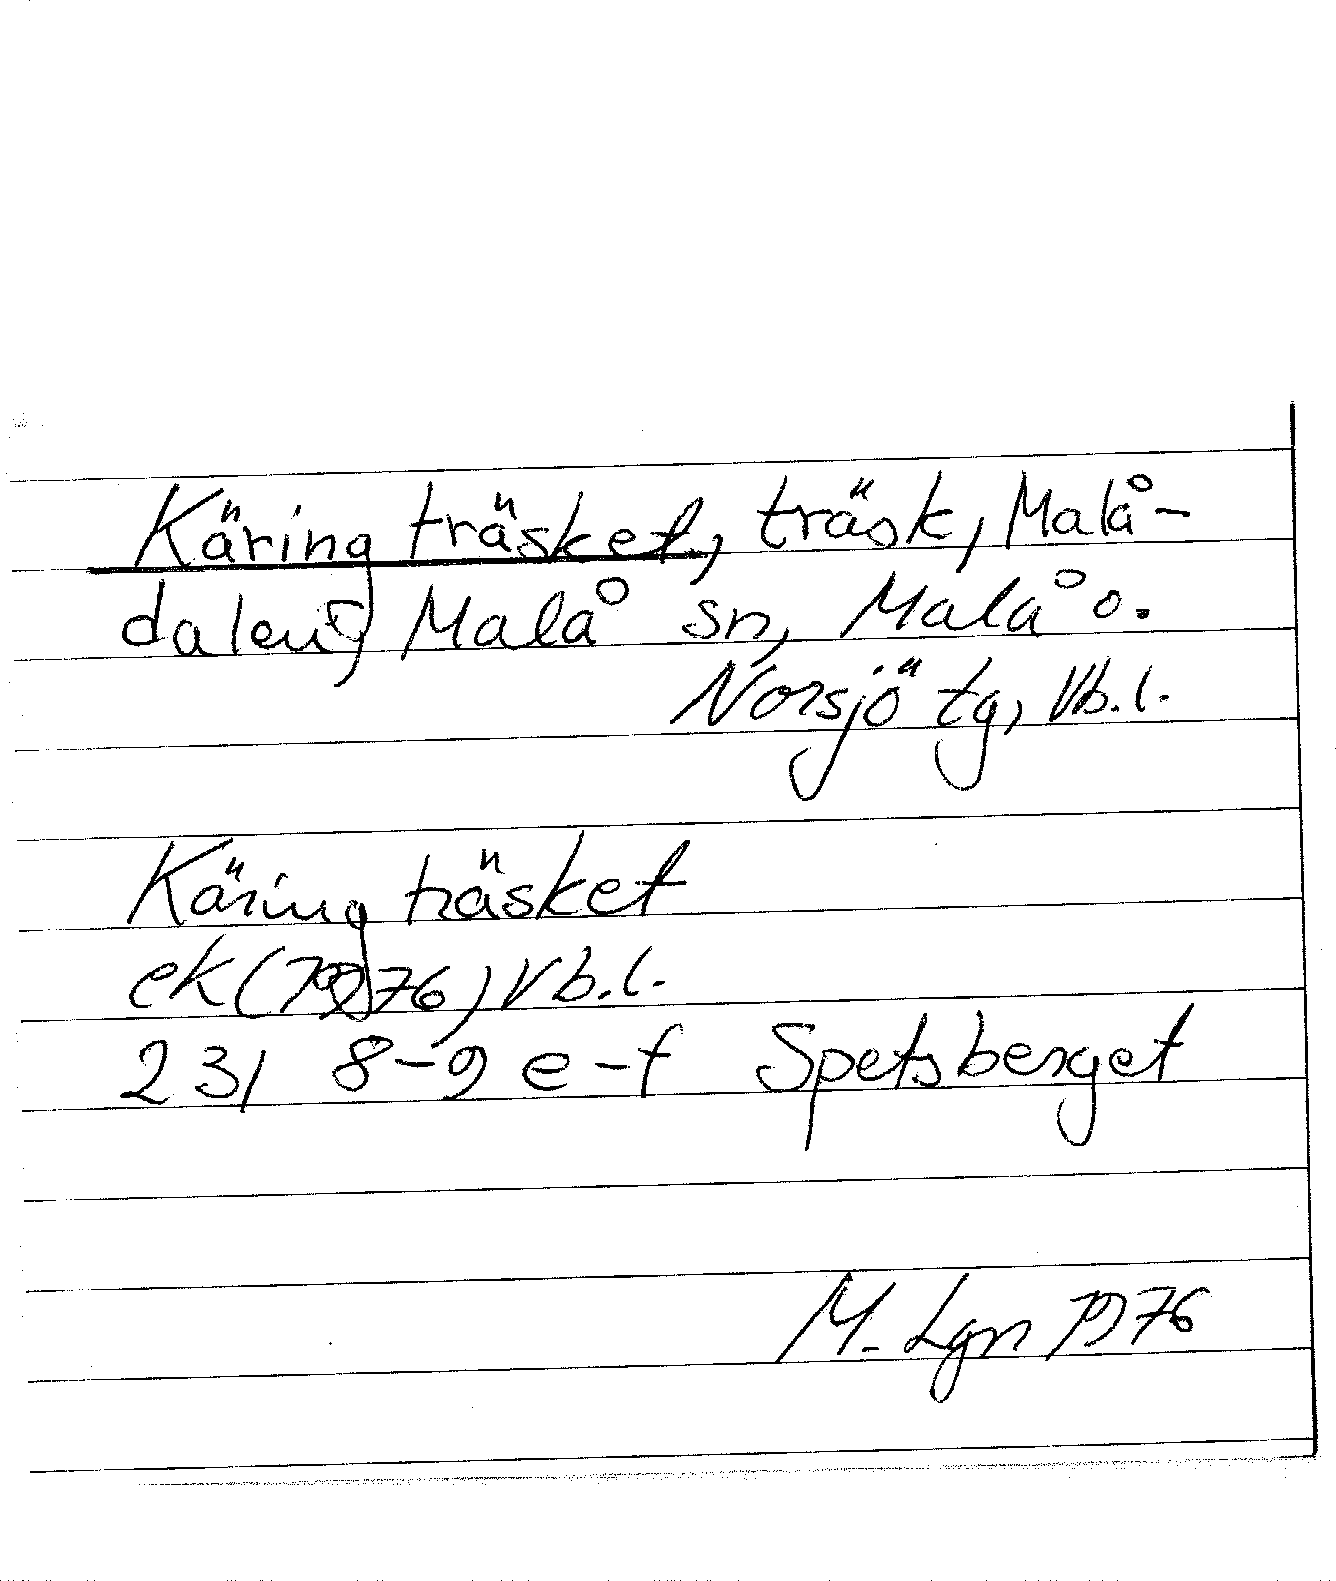 Käringträsket, träsk, Malå-
dalen, Malå sn, Malå o.
Norsjö tg, Vb.l.
Käringträsket
ek (1976) Vb.l.
23I 8-9 e-f Spetsberget
M. Lgn 1976